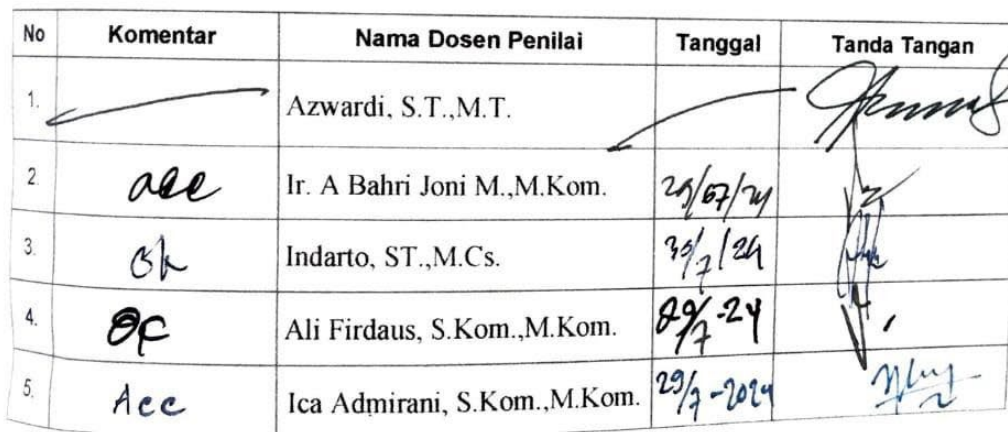 No Komentar Nama Dosen Penilai Tanggal Tanda Tangan
1. Azwardi, S.T.,M.T.
2. acc Ir. A Bahri Joni M.,M.Kom. 29/07/24
3. Ok Indarto, ST.,M.Cs. 30/7/24
4. Ali Firdaus, S.Kom.,M.Kom. 29/7-24
5. Acc Ica Admirani, S.Kom.,M.Kom. 29/7-2024